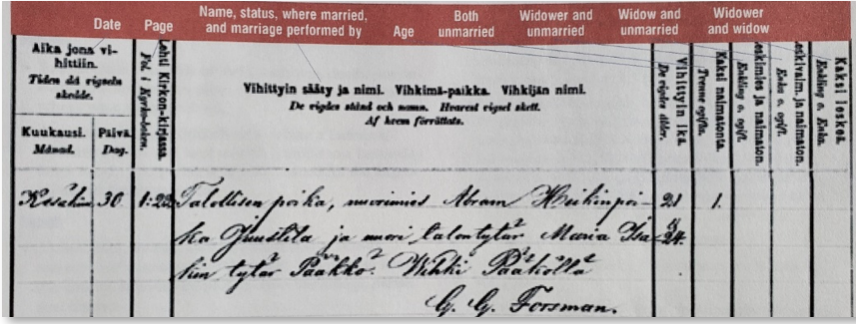 Date Page Name, status, where married, and marriage performed by Age Both unmarried Widower and unmarried Widow and unmarried Widower and widow
Aika jona vihittiin.
Tiden då vigseln skedde.
Kuukausi. Månad.
Päivä. Dag.
Lehti Kirkon-kirjassa.
Fol. i Kyrko-boken.
Vihittyin sääty ja nimi. Vihkimä-paikka. Vihkijän nimi.
De vigdes stånd och namn. Hvarest vigsel skett.
Af hvem förrättats.
Vihittyin ikä.
De vigdes ålder.
Kaksi naimatonta.
Tvenne ogifta.
Leskimies ja naimaton.
Enkling o. ogift.
Leskivaim. ja naimaton.
Enka o. ogift.
Kaksi leskeä.
Enkling o. Enka.
Kesäkuu 30 1:22 Talollisen poika, nuorimies Abram Heikinpoi- 21 1.
ka Juustila ja nuori talontytär Maria Isa- 24
kin tytär Paakko. Wihki Paakolla
G. G. Forsman.